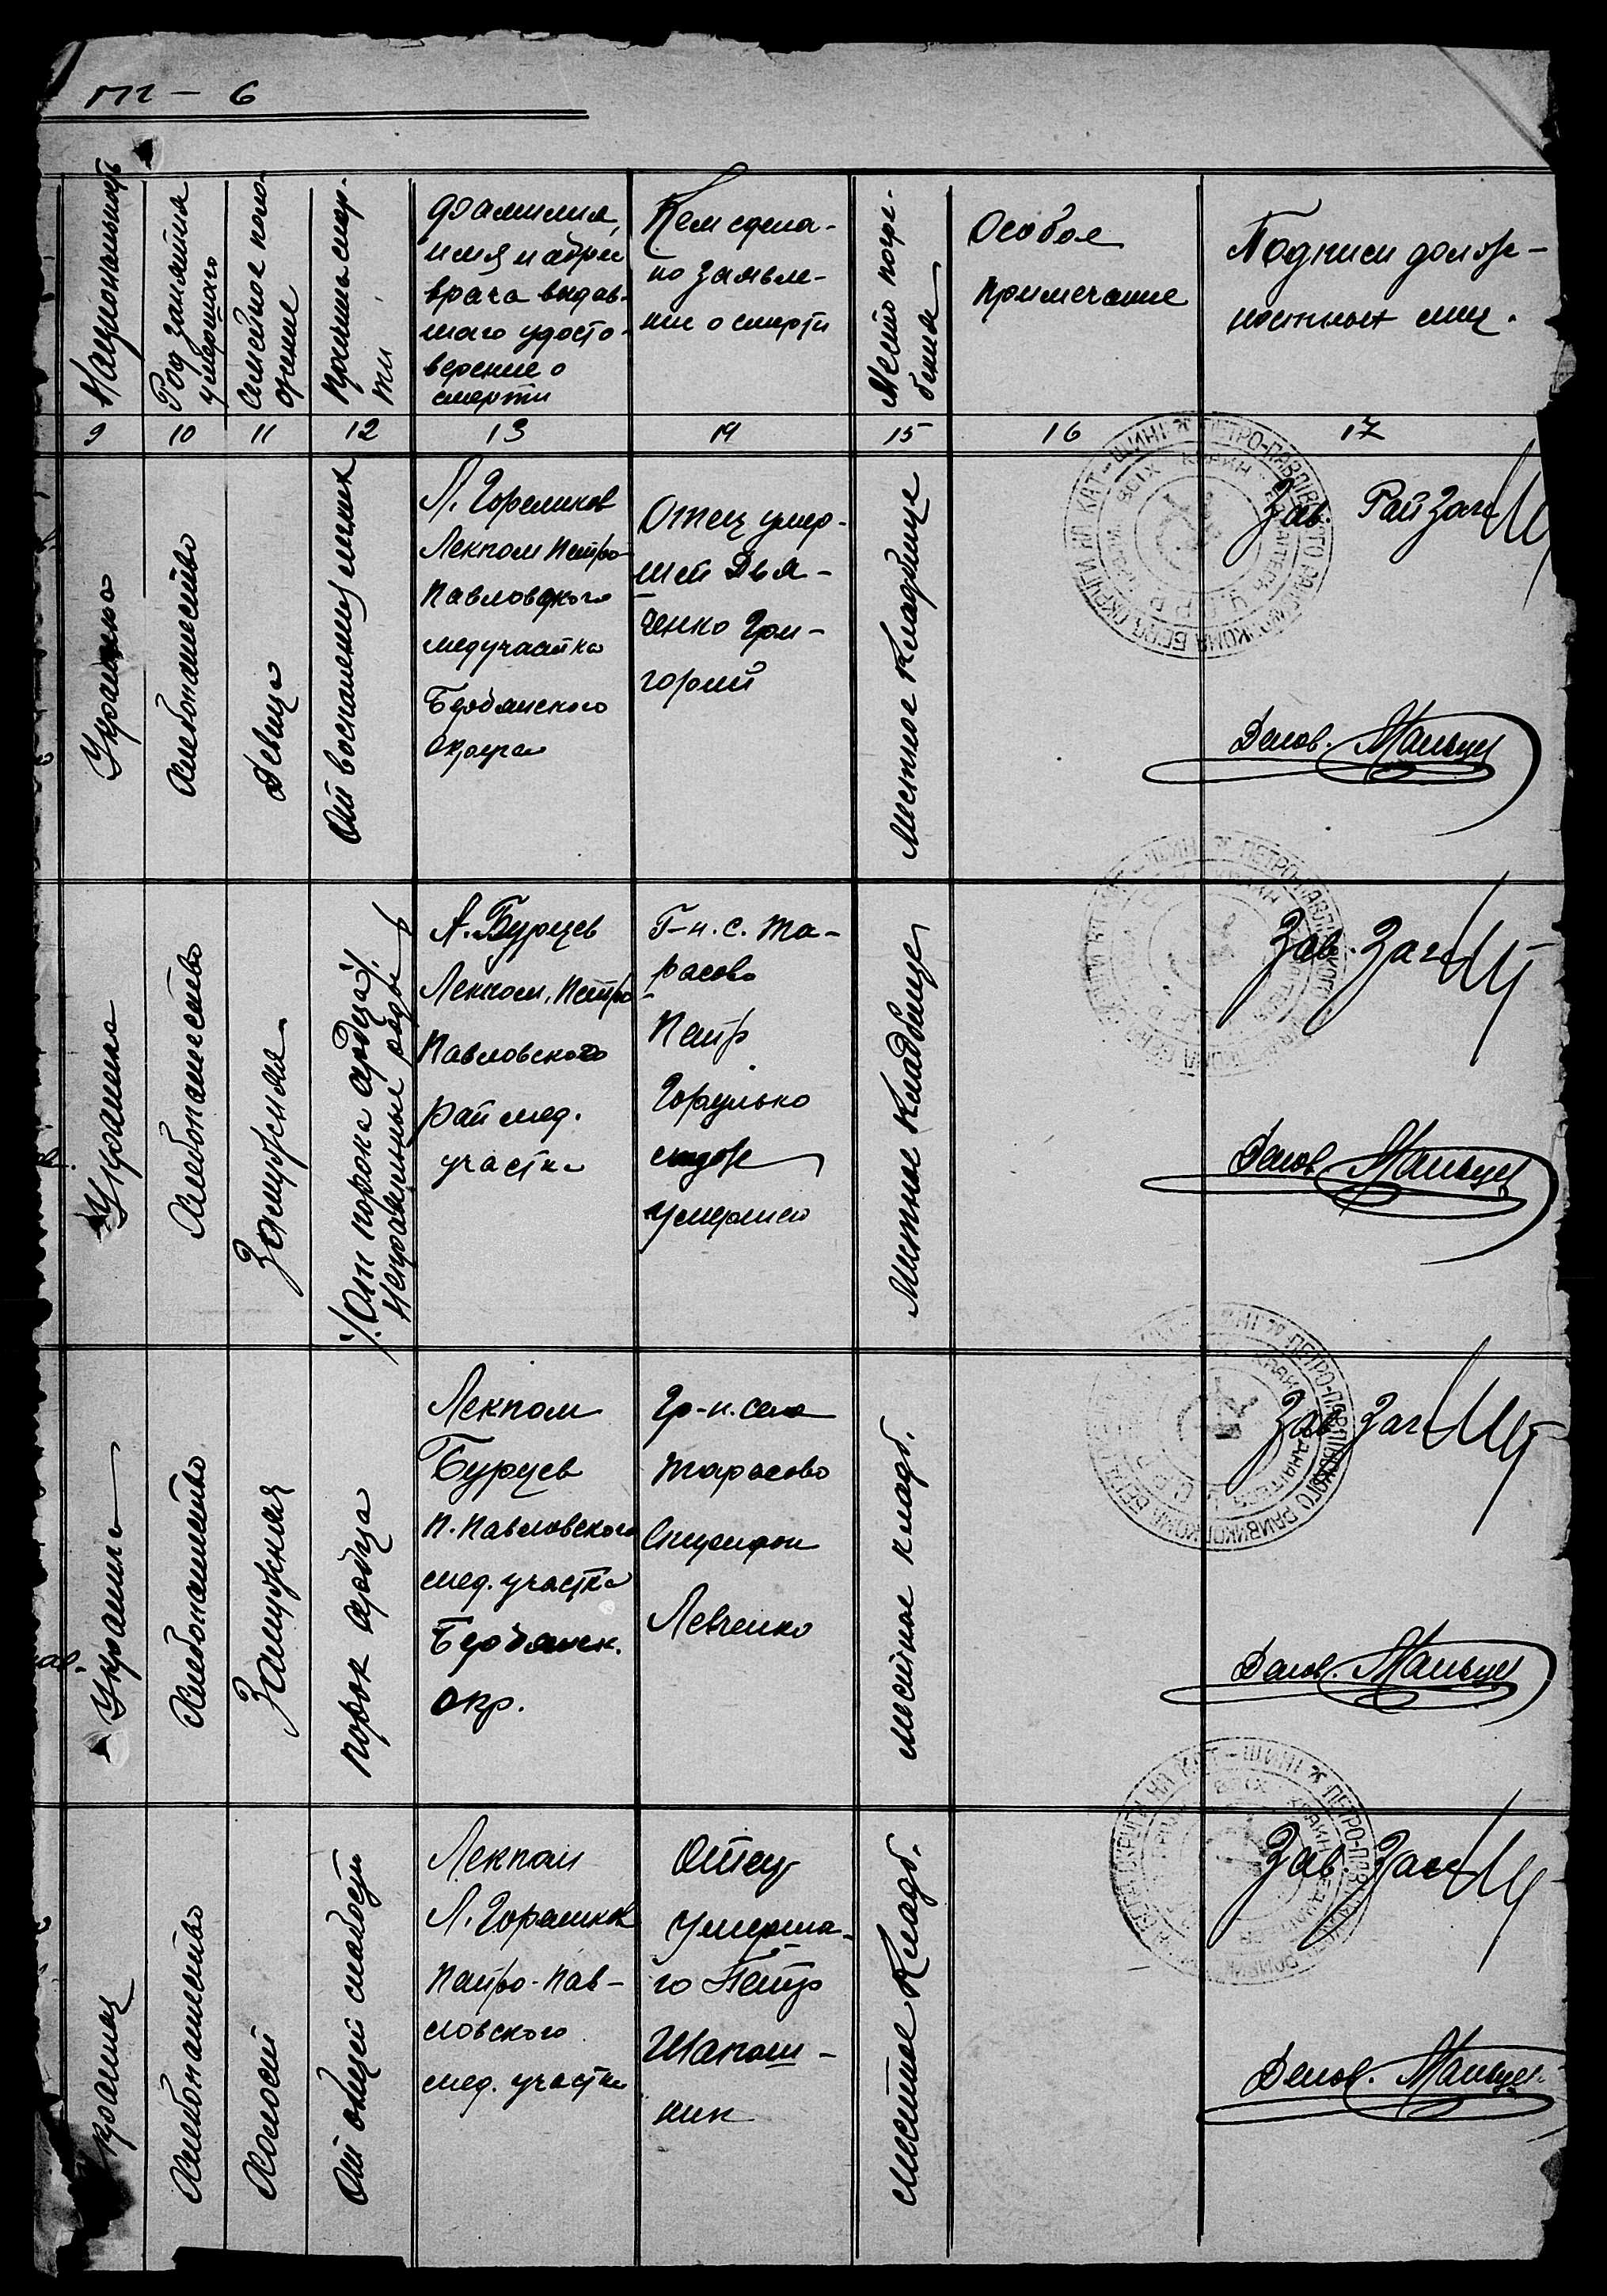 6
Национальность
Род занятия
умершого
Семейное поло-
жение
Причина смер-
ти
Фамилия,
имя и адрес
врача выдав-
шаго удосто-
верение о
смерти
Кем сдела-
но заявле-
ние о смерти
Место погре-
бения
Особое
примечание
Подписи долж-
ностных лиц.
9
10
11
12
13
14
15
16
17
Украинка
Хлебопашество
Девица
От воспаления
Л. Гореликов
Лекпом Петро-
Павловского
медучастка
Бердянского
округа
Отец умер-
шей Дья-
ченко Гри-
горий
Местное кладбище
Зав. РайЗаг
Делов. Мальцев
Украинка
Хлебопашество
Замужняя
/.От порока сердца/.
Неправильные роды
А. Бурцев
Лекпом, Петро-
Павловского
рай мед.
участка
Г-н. с. Та-
расово
Петр
Горулько
умершей
Местное кладбище
Зав. Заг
Делов. Мальцев
Украинка
Хлебопашество
Замужняя
порок сердца
Лекпом
Бурцев
П. Павловского
мед. участка
Бердянск.
окр.
Гр-н. села
Тарасово
Левченко
местное кладб.
Зав. Заг
Делов. Мальцев
краинец
Хлебопашество
Холост
От общей слабости
Лекпом
Л. Гореликов
Петро-Пав-
ловского
мед. участка
Отец
умерша-
го Петр
Шапош-
ник
местное кладб.
Зав. Заг
Делов. Мальцев